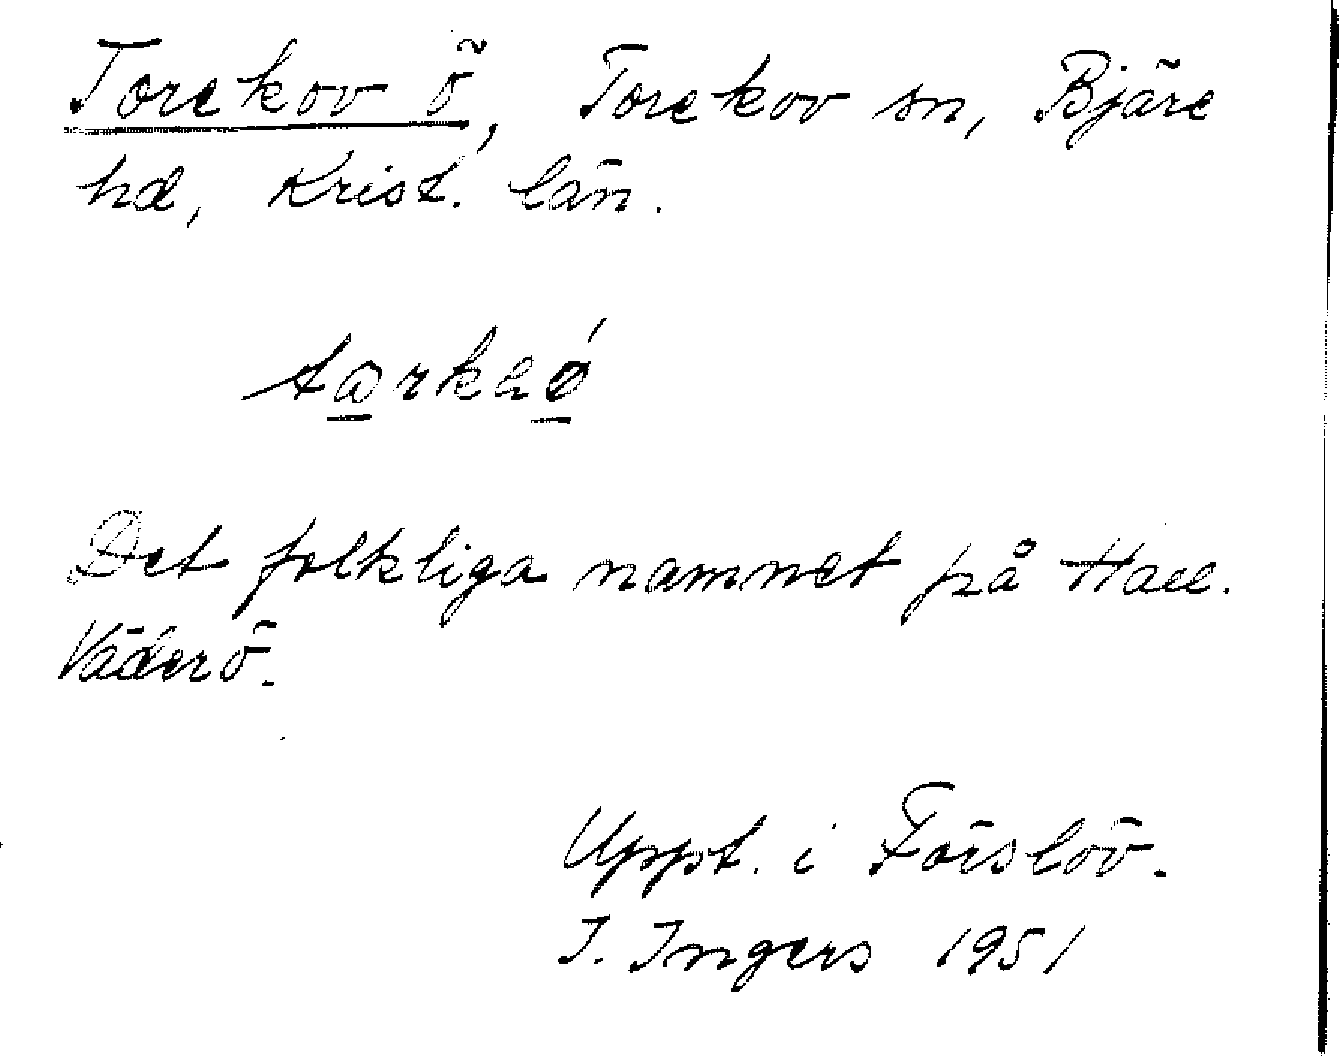 Torekov ö, Torekov sn, Bjäre
hd, Krist. län.
Det folkliga namnet på Hall.
Väderö.
Uppt. i Förslöv.
I. Ingers 1951